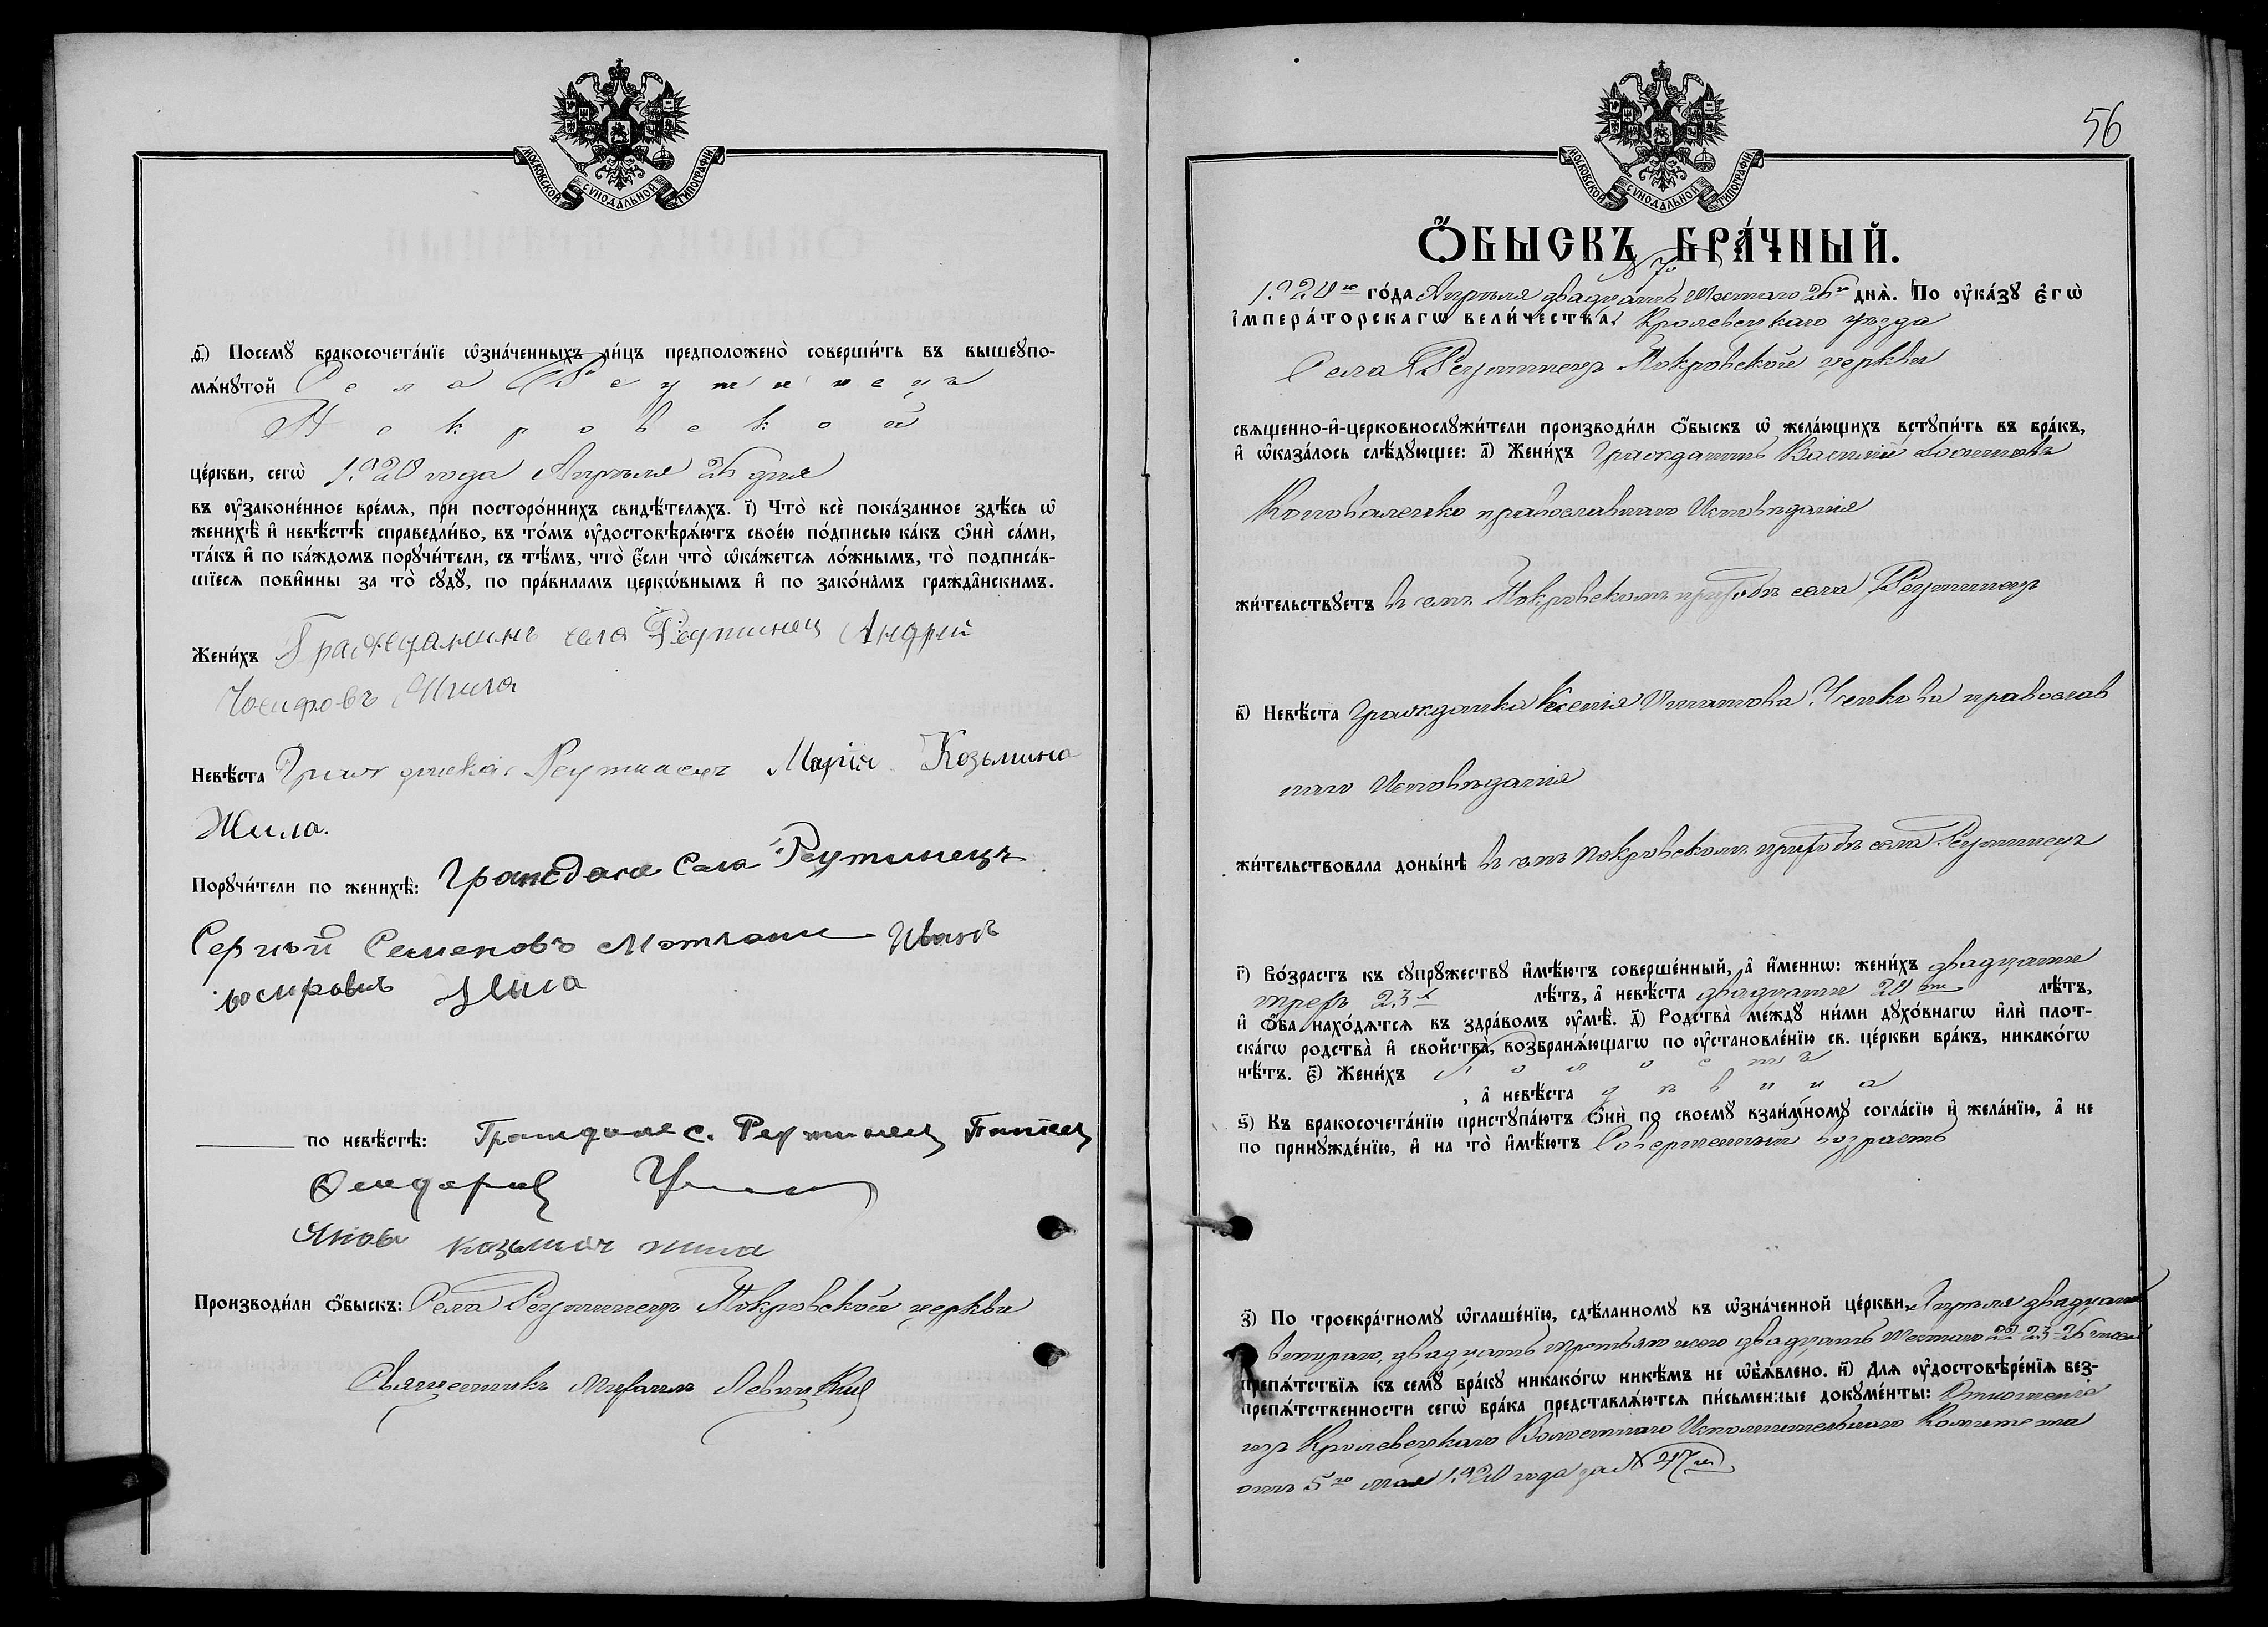 МОСКОВСКОЙ СѴНОДАЛЬНОЙ ТИПОГРАФІИ
д҃) Посемꙋ бракосочета́нїе ѡ҆зна́ченныхъ ли́цъ предположено̀ соверши́ть въ вышеꙋпо-
мѧ́нꙋтой Села Реутинецъ
Покровской
це́ркви, сегѡ̀ 1920 года Апрѣля 26 дня
въ ᲂу҆законе́нное вре́мѧ, при посторо́ннихъ свидѣ́телѧхъ. і҃) Что̀ всѐ пока́занное здѣ́сь ѡ҆
женихѣ̀ и҆ невѣ́стѣ справедли́во, въ то́мъ ᲂу҆достовѣрѧ́ютъ свое́ю по́дписью ка́къ ѻ҆нѝ са́ми,
та́къ и҆ по ка́ждомъ порꙋчи́тели, съ тѣ́мъ, что̀ є҆́сли что̀ ѡ҆ка́жетсѧ ло́жнымъ, то̀ подписа́в-
шїесѧ пови́нны за то̀ сꙋдꙋ̀, по пра́виламъ церкѡ́внымъ и҆ по зако́намъ гражда́нскимъ.
Жени́хъ Гражданинъ села Реутинец Андрей
Иосифовъ Жила
Невѣ́ста Реутинецъ Марія Козьмина
Жила.
Порꙋчи́тели по женихѣ̀: Граждане Села Реутинецъ
Сергий Семеновъ Иванъ
Жила
по невѣ́стѣ: Граждане с. Реутинец
Яковъ Козьминъ жила
Производи́ли ѻ҆́быскъ: Села Реутинецъ Покровской церкви
Священникъ Михаилъ Левицкий
56
МОСКОВСКОЙ СѴНОДАЛЬНОЙ ТИПОГРАФІИ
Ѻ҆́БЫСКЪ БРА́ЧНЫЙ.
№ 7й
1920го го́да Апрѣля двадцать Шестаго 26го днѧ̀. По ᲂу҆ка́зꙋ є҆гѡ̀
і҆мпера́торскагѡ вели́чества, Кролевецкаго уѣзда
Села Реутинецъ Покровской церкви
свѧщенно-и҆-церковнослꙋжи́тели производи́ли ѻ҆́быскъ ѡ҆ жела́ющихъ встꙋпи́ть въ бра́къ,
и҆ ѡ҆каза́лось слѣ́дꙋющее: а҃) Жени́хъ Гражданинъ Василий Іосифовъ
Коноваленко православнаго Исповѣданія
жи́тельствꙋетъ въ семъ Покровскомъ приходѣ села Реутинецъ
в҃) Невѣ́ста Гражданка Ксенія Усенкова православ
наго Исповѣданія
жи́тельствовала доны́нѣ въ семъ Покровскомъ приходѣ села Реутинецъ
г҃) Во́зрастъ къ сꙋпрꙋ́жествꙋ и҆мѣ́ютъ соверше́нный, а҆ и҆́менно: жени́хъ двадцати
трехъ 23х лѣ́тъ, а҆ невѣ́ста двадцати 20ти лѣ́тъ,
и҆ ѻ҆́ба нахо́дѧтсѧ въ здра́вомъ ᲂу҆мѣ̀. д҃) Родства̀ ме́ждꙋ ни́ми дꙋхо́внагѡ и҆лѝ плот-
ска́гѡ родства̀ и҆ сво́йства̀, возбранѧ́ющагѡ по ᲂу҆становле́нїю св. це́ркви бра́къ, никако́гѡ
нѣ́тъ. є҃) Жени́хъ холостъ
, а҆ невѣ́ста дѣвица
ѕ҃) Къ бракосочета́нїю пристꙋпа́ютъ ѻ҆нѝ по своемꙋ̀ взаи́мномꙋ согла́сїю и҆ жела́нїю, а҆ не
по принꙋжде́нїю, и҆ на то̀ и҆мѣ́ютъ Совершенный возрастъ
з҃) По троекра́тномꙋ ѡ҆глаше́нїю, сдѣ́ланномꙋ въ ѡ҆зна́ченной це́ркви, Апрѣля двадцать
втораго, двадцать третьяго и двадцать Шестаго 22-23-26 чиселъ
препѧ́тствїѧ къ семꙋ̀ бра́кꙋ никако́гѡ никѣ́мъ не ѡ҆б̾ѧ́влено. и҃) Длѧ ᲂу҆достовѣре́нїѧ без-
препѧ́тственности сегѡ̀ бра́ка представлѧ́ютсѧ пи́сьменные докꙋме́нты: Отношеніе
изъ Кролевецкаго Волостнаго Исполнительнаго Комитета
отъ 5го мая 1920 года за №